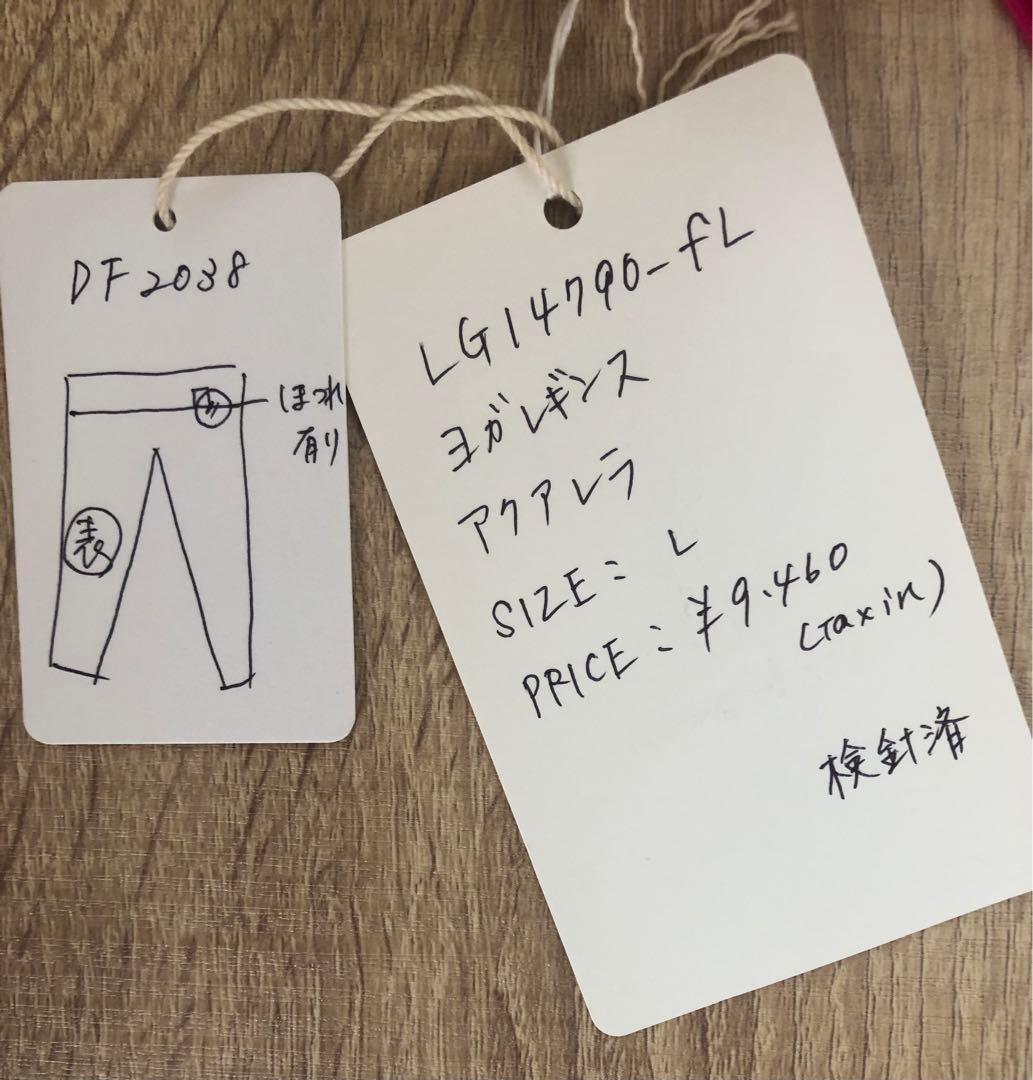 DF2038
ほつれ
有り
表
LG14790-fL
ヨガレギンス
アクアレラ
SIZE: L
PRICE: ¥9.460
(Tax in)
検針済